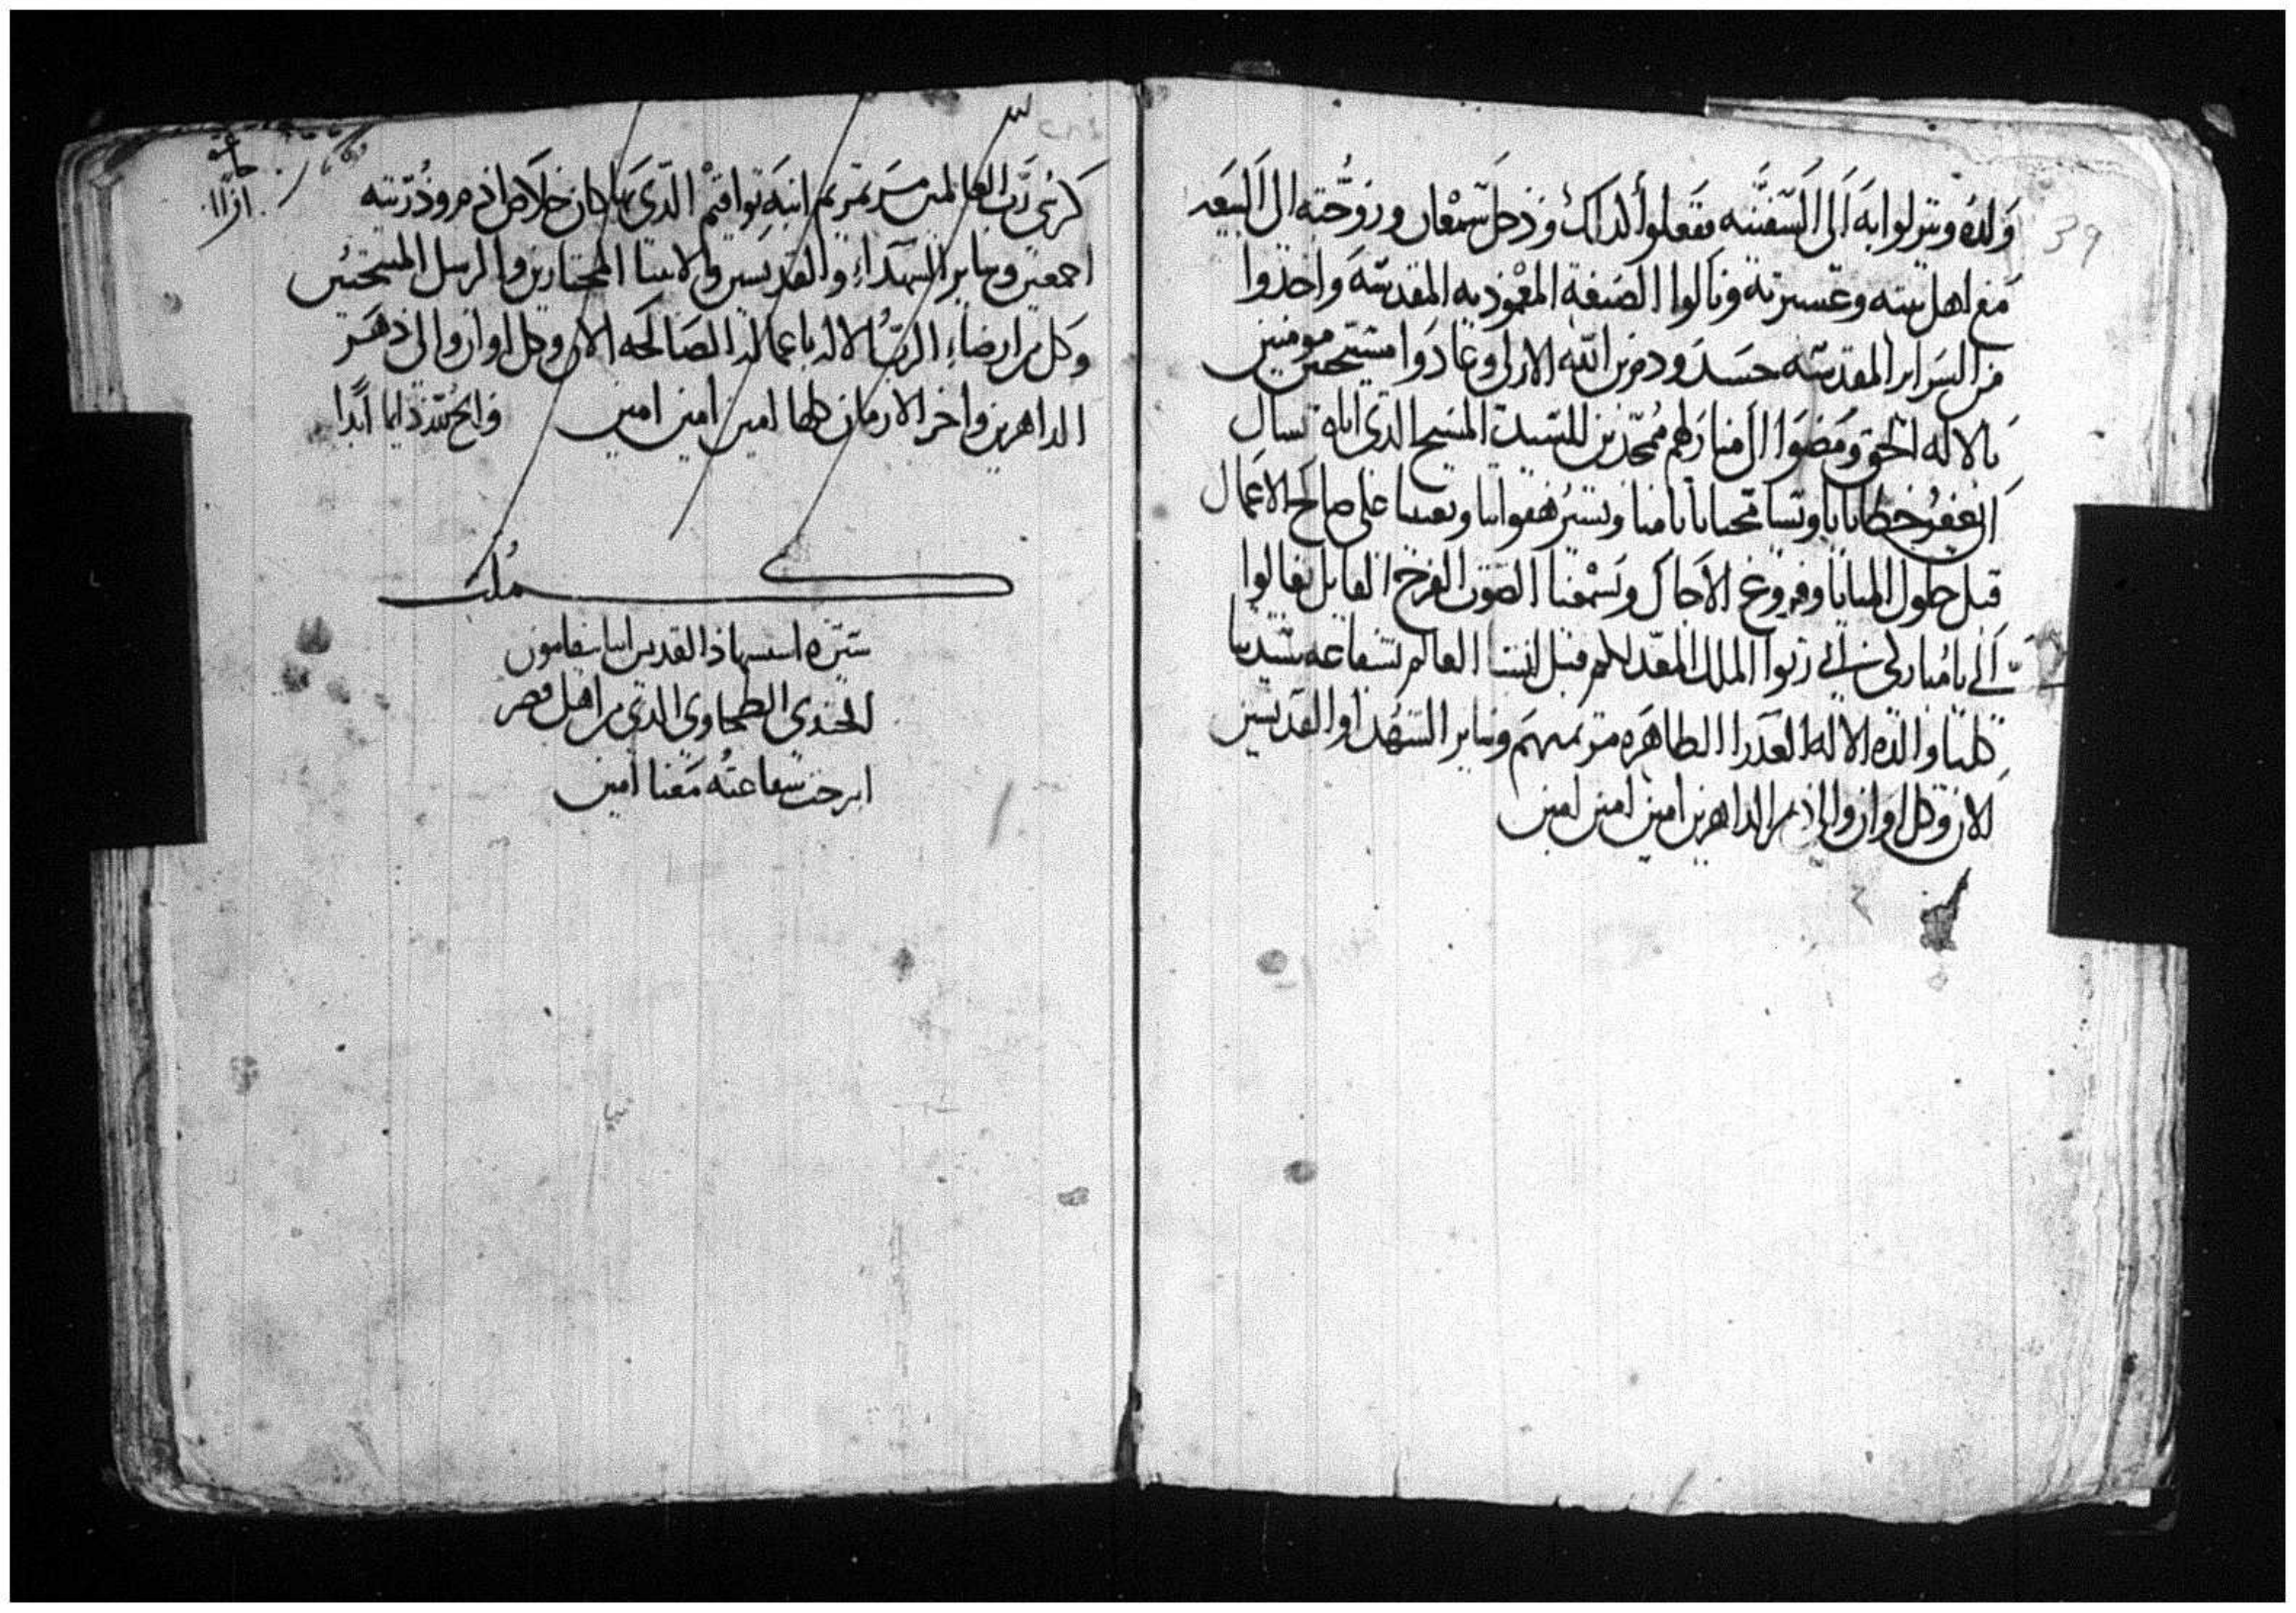 39
ولده وينزلوا به الى السفينه ففعلوا كذلك ودخل سمعان وزوجته الى البيعه
مع اهل بيته وعشيرته ونالوا الصبغة المعموديه المقدسه واخذوا
من السراير المقدسه جسد ودم ابن الله الازلى وعادوا مسيحيين مومنين
بالاله الحق ومضوا الى منازلهم ممجدين للسيد المسيح الدى اياه نسال
ان يغفر خطايانا ويسامحنا باثامنا ويستر هفواتنا ويعيننا على صالح الاعمال
قبل حلول المنايا وفروغ الاجال ويسمعنا الصوت الفرح القايل تعالوا
الي يا مباركى ابي رتوا الملك المعد لكم قبل انشا العالم بشفاعه سيدتنا
كلنا والدة الاله العدرا الطاهره مرتمريم وساير الشهدا والقديسين
الان وكل اوان والى دهر الداهرين امين امين امين
كرسى رب العالمين مرتمريم ابنة يواقيم الدى بها كان خلاص ادم وذريته
اجمعين وساير الشهداء والقديسين والانبيا المختارين والرسل المنتخبين
وكل من ارضاء الرب الاله باعماله الصالحه الان وكل اوان والى دهر
الداهرين واخر الازمان كلها امين امين امين والمجد لله دايما ابدا
كملت
سيرة استشهاد القديس
الجندى الطحاوي الدي من اهل قصر
شفاعته معنا امين